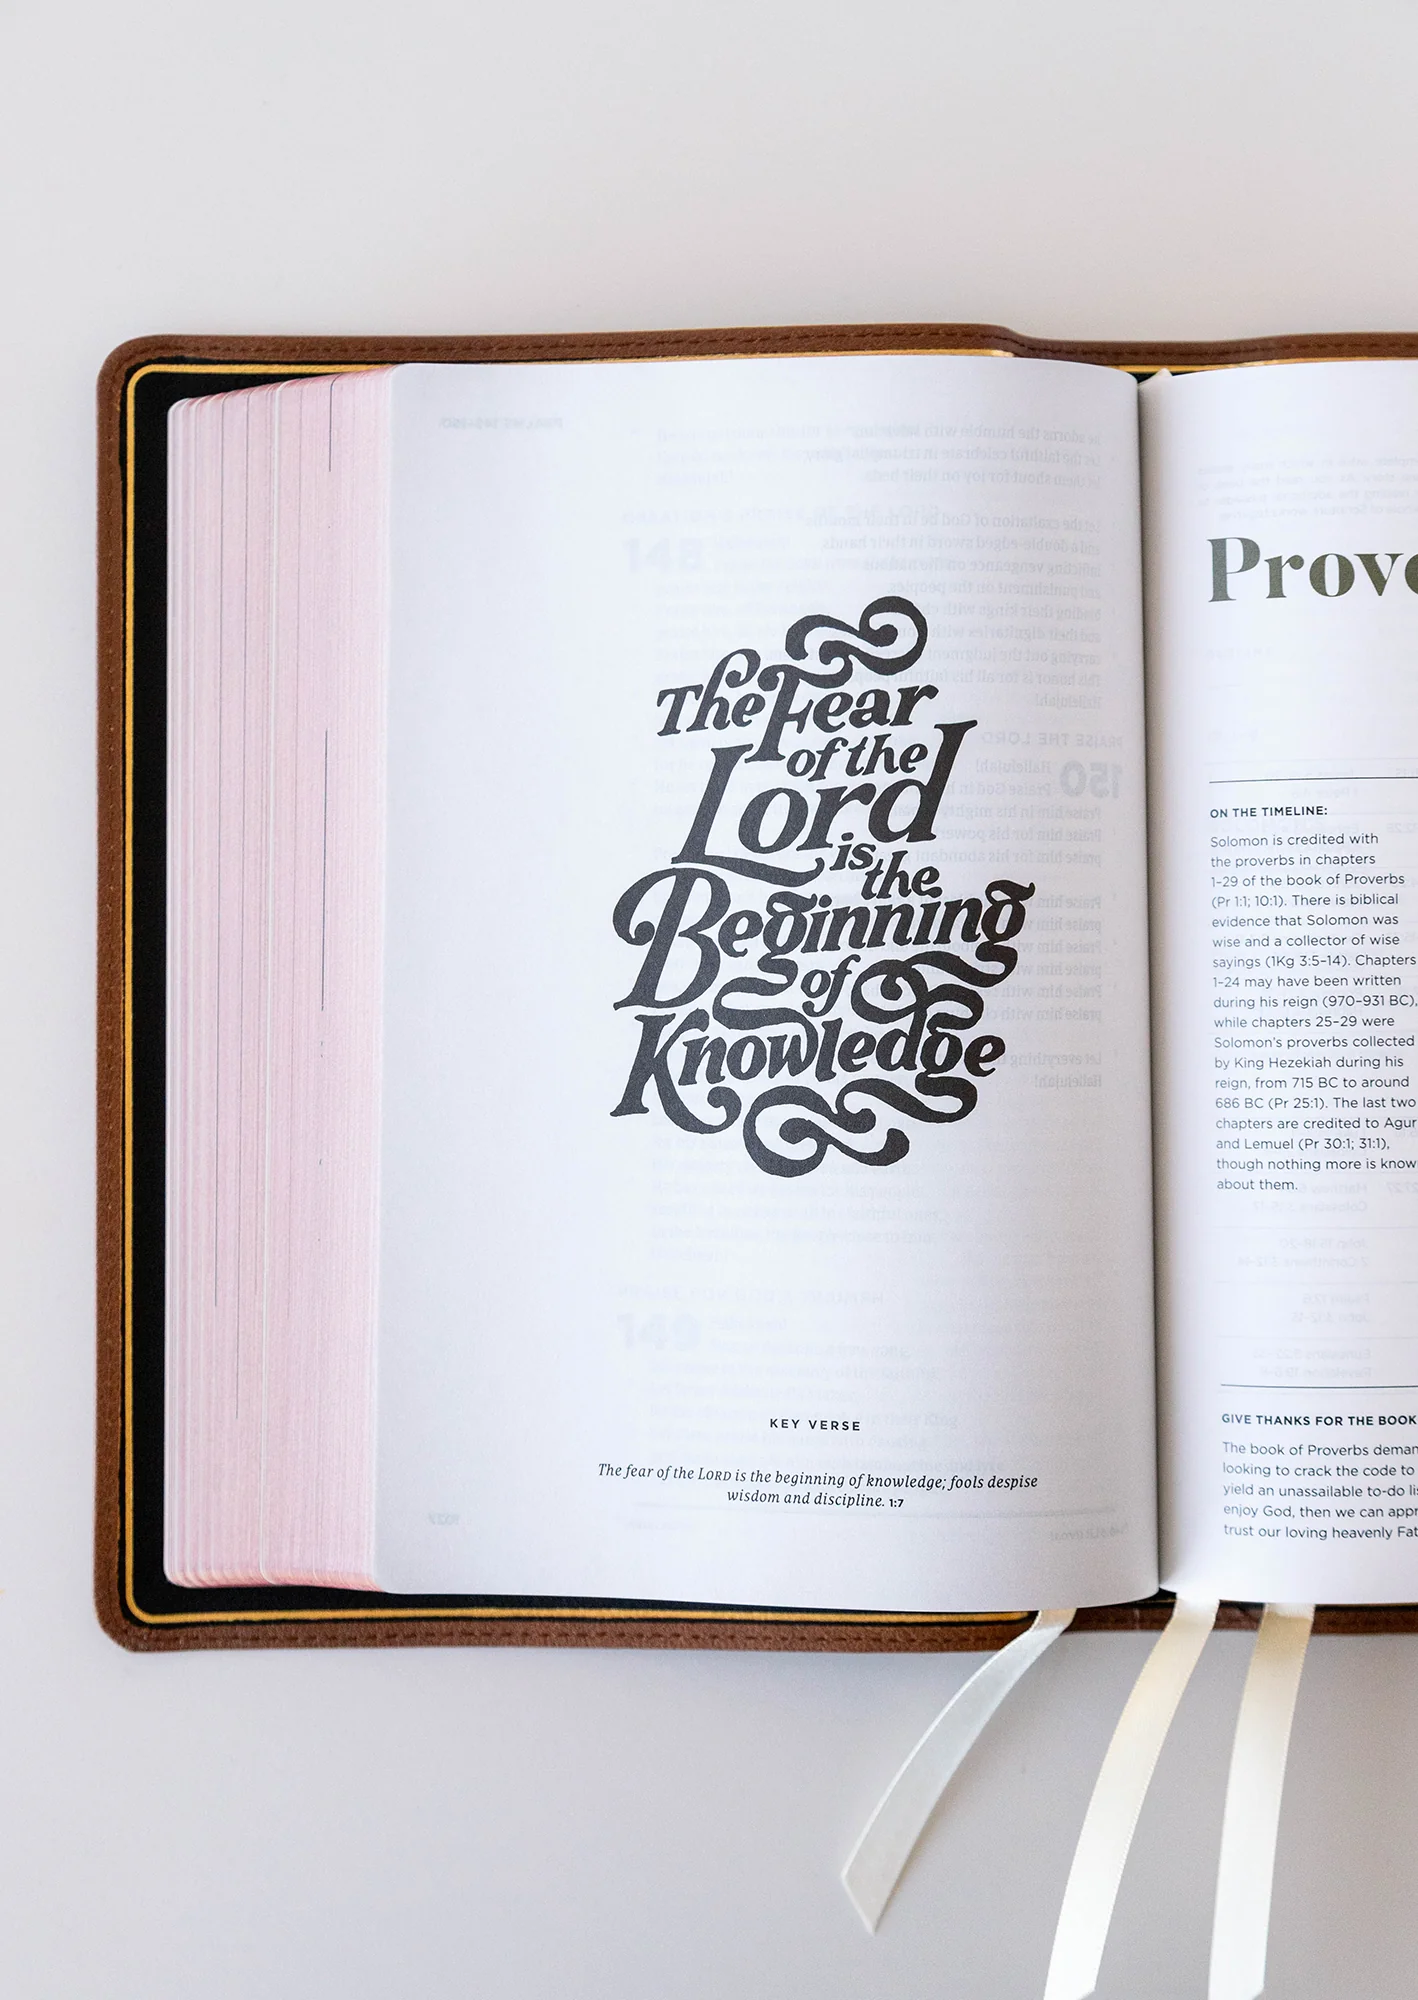 The Fear
of the
Lord
is
the
Beginning
of
Knowledge
KEY VERSE
The fear of the LORD is the beginning of knowledge; fools despise
wisdom and discipline. 1:7
ON THE TIMELINE:
Solomon is credited with
the proverbs in chapters
1–29 of the book of Proverbs
(Pr 1:1; 10:1). There is biblical
evidence that Solomon was
wise and a collector of wise
sayings (1Kg 3:5–14). Chapters
1–24 may have been written
during his reign (970–931 BC),
while chapters 25–29 were
Solomon's proverbs collected
by King Hezekiah during his
reign, from 715 BC to around
686 BC (Pr 25:1). The last two
chapters are credited to Agur
and Lemuel (Pr 30:1; 31:1),
though nothing more is
about them.
GIVE THANKS FOR THE BOOK
The book of Proverbs
looking to crack the code to
yield an unassailable to-do
enjoy God, then we can
trust our loving heavenly